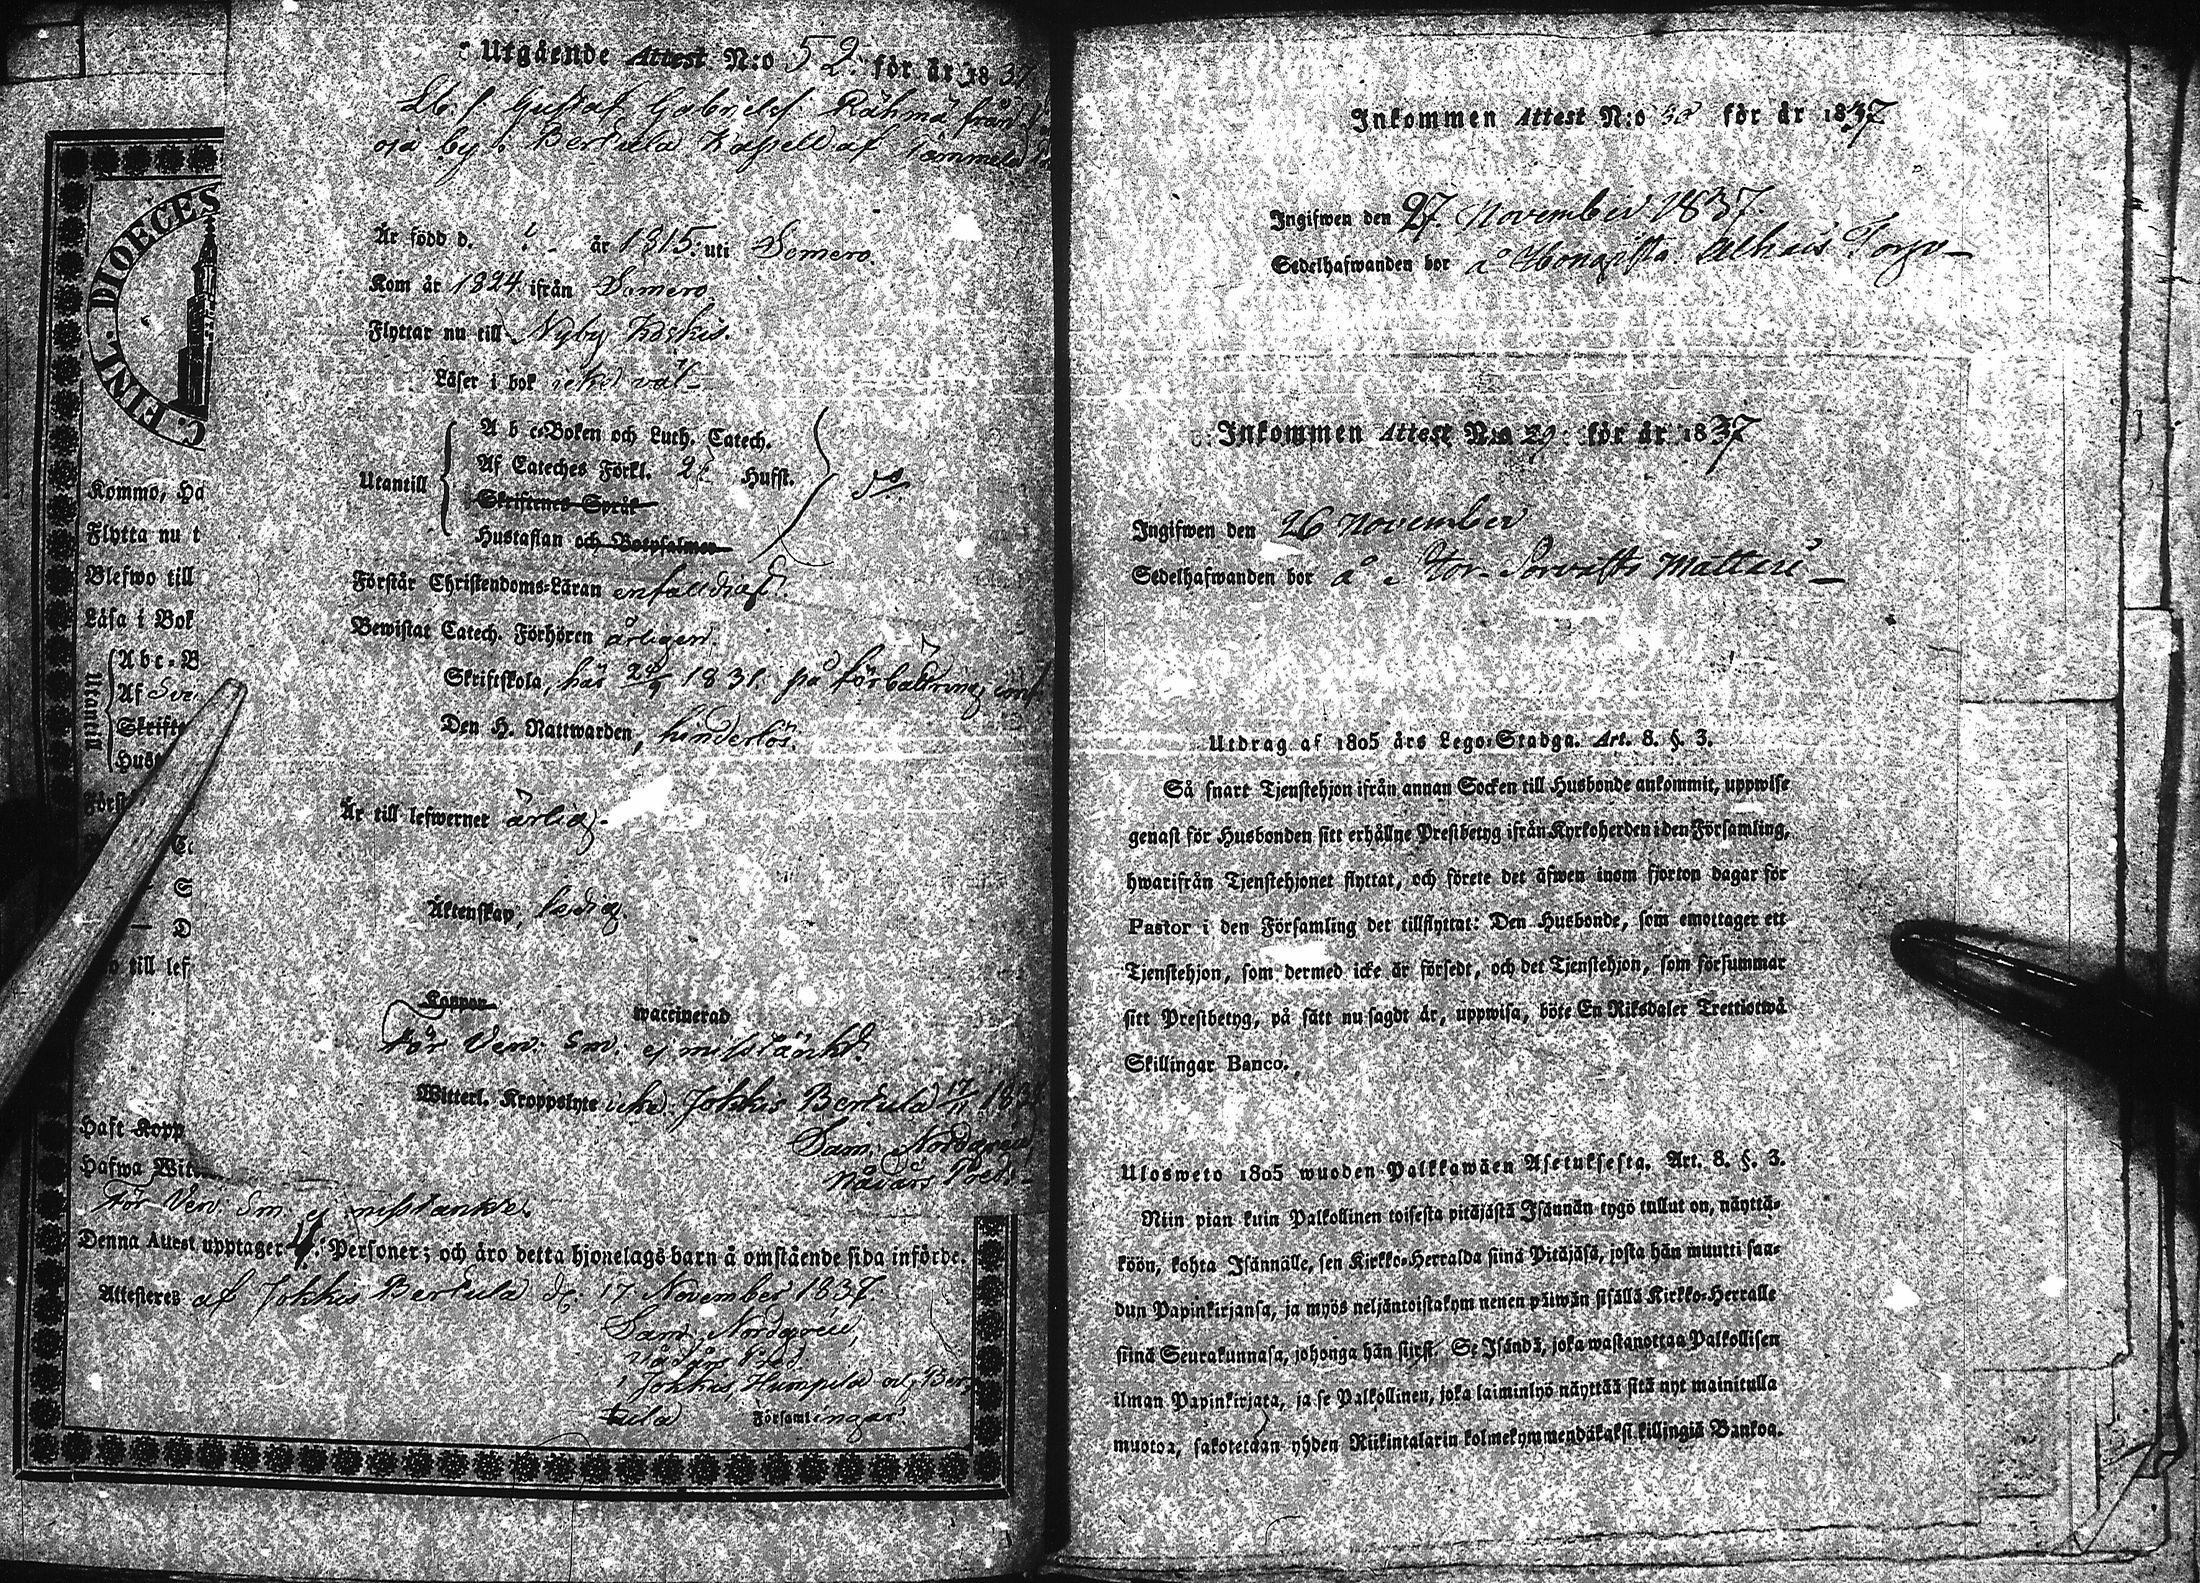 Utgående Attest N:o 52. för år 1837
Gustaf Gabrielss. Rähmä från
oja by i Bertula Kapell af Tammela
Är född d. år 1815. uti Somero.
Kom år 1824 ifrån Somero.
Flyttar nu till Nyby Koskis.
Läser i bok icke väl
Utantill
A b c-Boken och Luth. Catech.
Af Cateches Förkl. Hufst.
Skriftenes Språk
Hustaflan och Botpsalmer
Förstår Christendoms-Läran enfaldigt.
Bewistat Catech. Förhören årligen.
Skriftskola, här 1831. på förbättring
Den H. Nattwarden, hinderlös.
Är till lefwernet ärlig.
Äktenskap, ledig.
Koppor waccinerad
För Ven. Sm. ej misstänkt.
Witterl. Kroppslyte icke. Jokkis Bertula 17/11 183
Sam. Nordgren,
Nådårs Pred.
C. FINL. DIOECES
Kommo, Ha
Flytta nu t
Blefwo till
Läsa i Bok
Utantill
A b c - B
Af Sve
Skrifte
Hust
Först
D
till lef
Haft Kopp
Hafwa Wit
För Ven. Sm. ej misstänkte.
Denna Attest upptager 4. Personer; och äro detta hjonelags barn å omstående sida införde.
Attesteres af Jokkis Bertula d. 17 November 1837.
Sam. Nordgren,
Nådårs Pred.
i Jokkis, Humpila och Ber-
tula Församlingar
Inkommen Attest N:o 30 för år 1837
Ingifwen den 27. November 1837.
Sedelhafwanden bor å
Inkommen Attest N:o 29 för år 1837
Ingifwen den 26 November
Sedelhafwanden bor å Matteis
Utdrag af 1805 års Lego-Stadga. Art. 8. §. 3.
Så snart Tjenstehjon ifrån annan Socken till Husbonde ankommit, uppwise
genast för Husbonden sitt erhållne Prestbetyg ifrån Kyrkoherden i den Församling,
hwarifrån Tjenstehjonet flyttat, och förete det äfwen inom fjorton dagar för
Pastor i den Församling det tillflyttat: Den Husbonde, som emottager ett
Tjenstehjon, som dermed icke är försedt, och det Tjenstehjon, som försummar
sitt Prestbetyg, på sätt nu sagdt är, uppwisa, böte En Riksdaler Trettiotwå
Skillingar Banco.
Ulosweto 1805 wuoden Palkkawäen Asetuksesta. Art. 8. §. 3.
Niin pian kuin Palkollinen toisesta pitäjästä Isännän tygö tullut on, näyttä-
köön, kohta Isännälle, sen Kirkko-Herralda siinä Pitäjäsä, josta hän muutti saa-
dun Papinkirjansa, ja myös neljäntoistakymmenen päiwän sisällä Kirkko-Herralle
siinä Seurakunnasa, johonga hän siirsi. Se Isändä, joka wastanottaa Palkollisen
ilman Papinkirjata, ja se Palkollinen, joka laiminlyö näyttää sitä nyt mainitulla
muotoa, sakotetaan yhden Riikintalarin kolmekymmendäkaksi killingiä Bankoa.